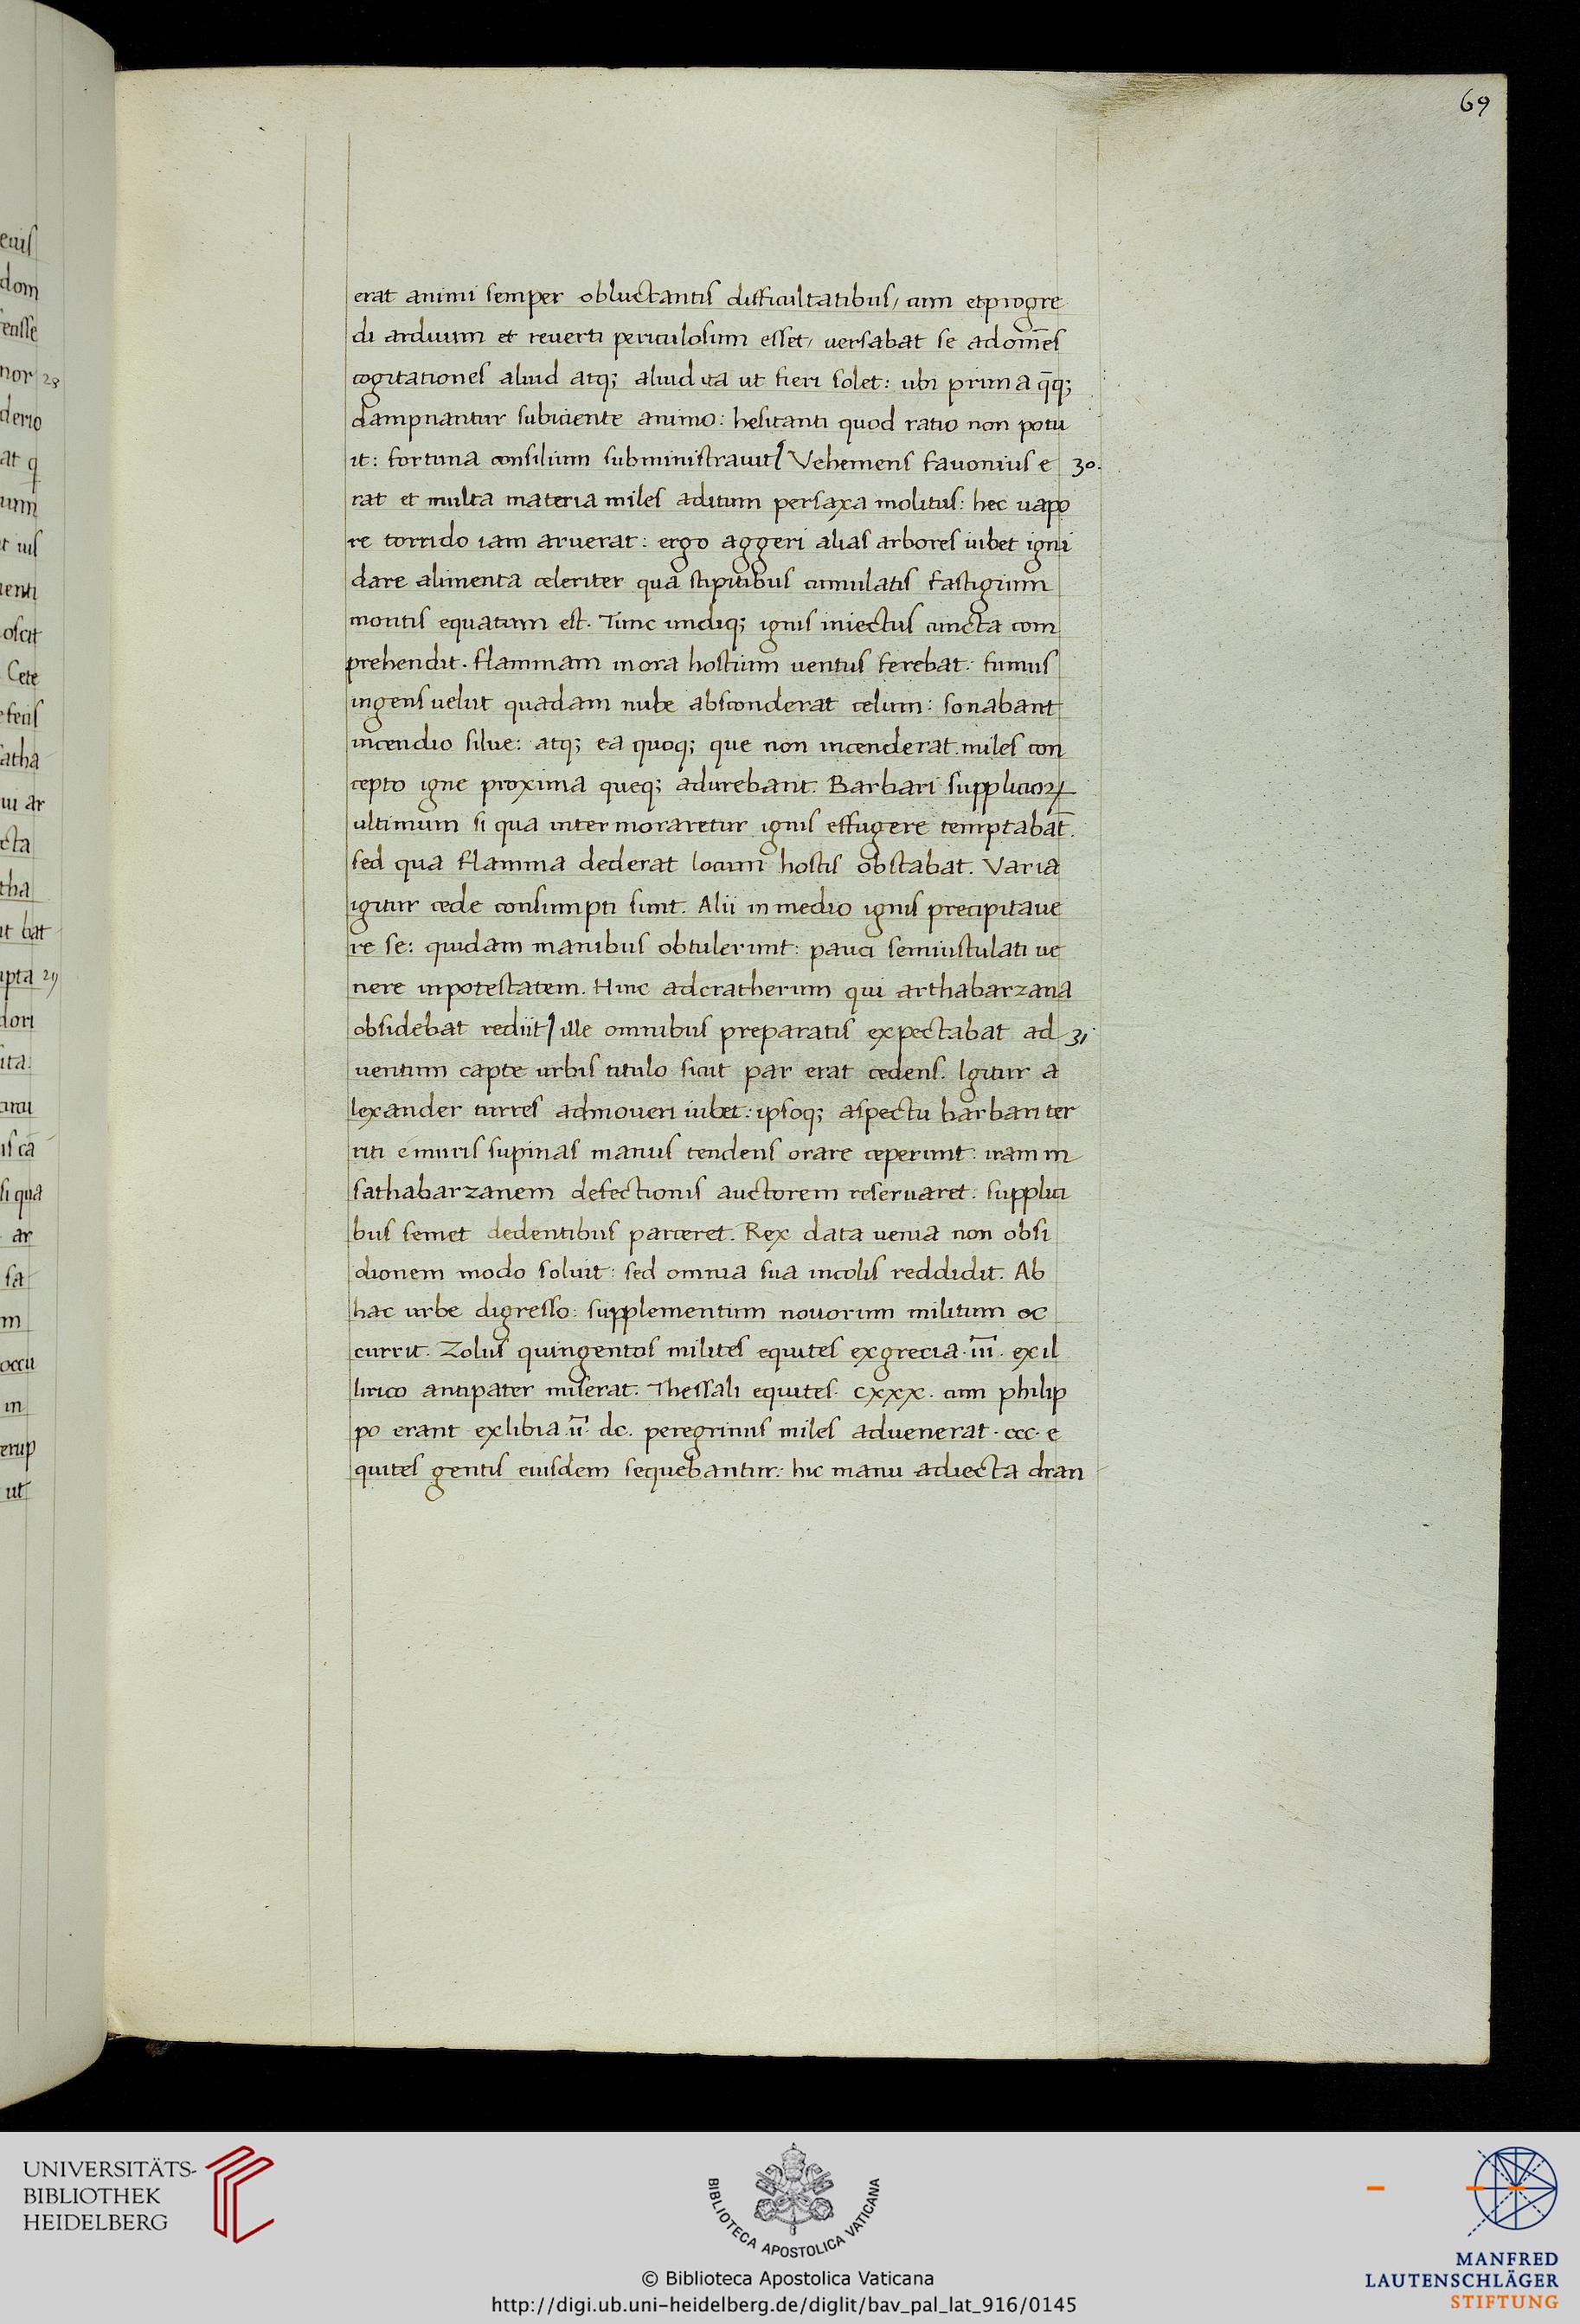 69
erat animi semper obluctantis difficultatibus, cum et progre
di arduum et reuerti periculosum esset, uersabat se ad om̅es
cogitationes aliud atq; aliud ita ut fieri solet: ubi prima q̅q;
dampnantur subiciente animo: hesitanti quod ratio non potu
it: fortuna consilium subministrauit/ Vehemens fauonius e 30.
rat et multa materia miles aditum per saxa molitus: hec uapo
re torrido iam aruerat: ergo aggeri alias arbores iubet igni
dare alimenta celeriter qua stipitibus cumulatis fastigium
montis equatum est. Tunc undiq; ignis iniectus cuncta com
prehendit. flammam in ora hostium uentus ferebat: fumus
ingens uelut quadam nube absconderat celum: sonabant
incendio silue: atq; ea quoq; que non incenderat miles con
cepto igne proxima queq; adurebant. Barbari supplicioꝝ
ultimum si qua intermoraretur ignis effugere temptaba̅t.
sed qua flamma dederat locum hostis obstabat. Varia
igitur cede consumpti sunt. Alii in medio ignis precipitaue
re se: quidam manibus obtulerunt: pauci semiustulati ue
nere in potestatem. Hinc ad cratherum qui arthabarzana
obsidebat rediit/ ille omnibus preparatis expectabat ad 31
uentum capte urbis titulo sicut par erat cedens. Igitur a
lexander turres admoueri iubet: ipsoq; aspectu barbari ter
riti e muris supinas manus tendens orare ceperunt: iram in
sathabarzanem defectionis auctorem reseruaret: supplici
bus semet dedentibus parceret. Rex data uenia non obsi
dionem modo soluit: sed omnia sua incolis reddidit. Ab
hac urbe digresso: supplementum nouorum militum oc
currit. Zolus quingentos milites equites ex grecia. i̅i̅i̅. ex il
lirico antipater miserat. Thessali equites. cxxx. cum philip
po erant ex libia. i̅i̅. dc. peregrinus miles aduenerat. ccc. e
quites gentis eiusdem sequebantur: hic manu adiecta dran
UNIVERSITÄTS-
BIBLIOTHEK
HEIDELBERG
BIBLIOTECA APOSTOLICA VATICANA
© Biblioteca Apostolica Vaticana
http://digi.ub.uni-heidelberg.de/diglit/bav_pal_lat_916/0145
MANFRED
LAUTENSCHLÄGER
STIFTUNG